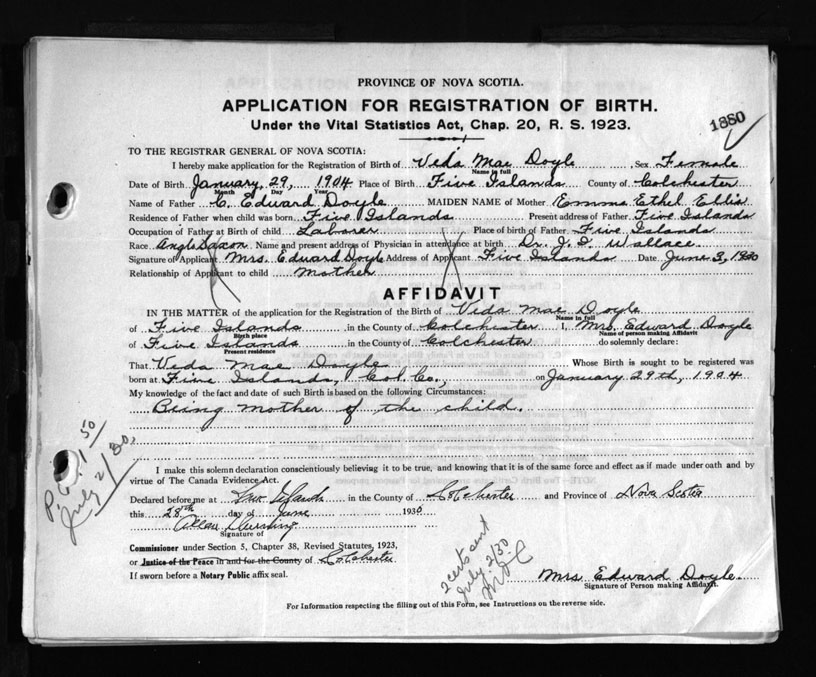 PROVINCE OF NOVA SCOTIA.
APPLICATION FOR REGISTRATION OF BIRTH.
1880
Under the Vital Statistics Act, Chap. 20, R. S. 1923.
TO THE REGISTRAR GENERAL OF NOVA SCOTIA:
I hereby make application for the Registration of Birth of Veda Mae Doyle, Sex Female
Name in full
Date of Birth January, 29, 1904 Place of Birth Five Islands County of Colchester
Month Day Year
Name of Father C. Edward Doyle MAIDEN NAME of Mother Emma Ethel Ellis
Residence of Father when child was born Five Islands Present address of Father Five Islands
Occupation of Father at Birth of child Laborer Place of birth of Father Five Islands
Race Anglo Saxon Name and present address of Physician in attendance at birth Dr. J. Wallace
Signature of Applicant Mrs. Edward Doyle Address of Applicant Five Islands Date June 3, 1930
Relationship of Applicant to child Mother
AFFIDAVIT
IN THE MATTER of the application for the Registration of the Birth of Veda Mae Doyle
Name in full
of Five Islands in the County of Colchester I, Mrs. Edward Doyle
Birth place Name of person making Affidavit
of Five Islands in the County of Colchester do solemnly declare:
Present residence
That Veda Mae Doyle Whose Birth is sought to be registered was
born at Five Islands, Col. Co., on January 29th, 1904
My knowledge of the fact and date of such Birth is based on the following Circumstances:
Being mother of the child.
I make this solemn declaration conscientiously believing it to be true, and knowing that it is of the same force and effect as if made under oath and by
virtue of The Canada Evidence Act.
Declared before me at in the County of Colchester and Province of Nova Scotia
this 28th day of June 1930
Signature of
Commissioner under Section 5, Chapter 38, Revised Statutes, 1923,
or Justice of the Peace in and for the County of Colchester
If sworn before a Notary Public affix seal.
Mrs. Edward Doyle.
Signature of Person making Affidavit.
For Information respecting the filling out of this Form, see Instructions on the reverse side.
1 50
July 2/30
2 certs sent
July 2/30